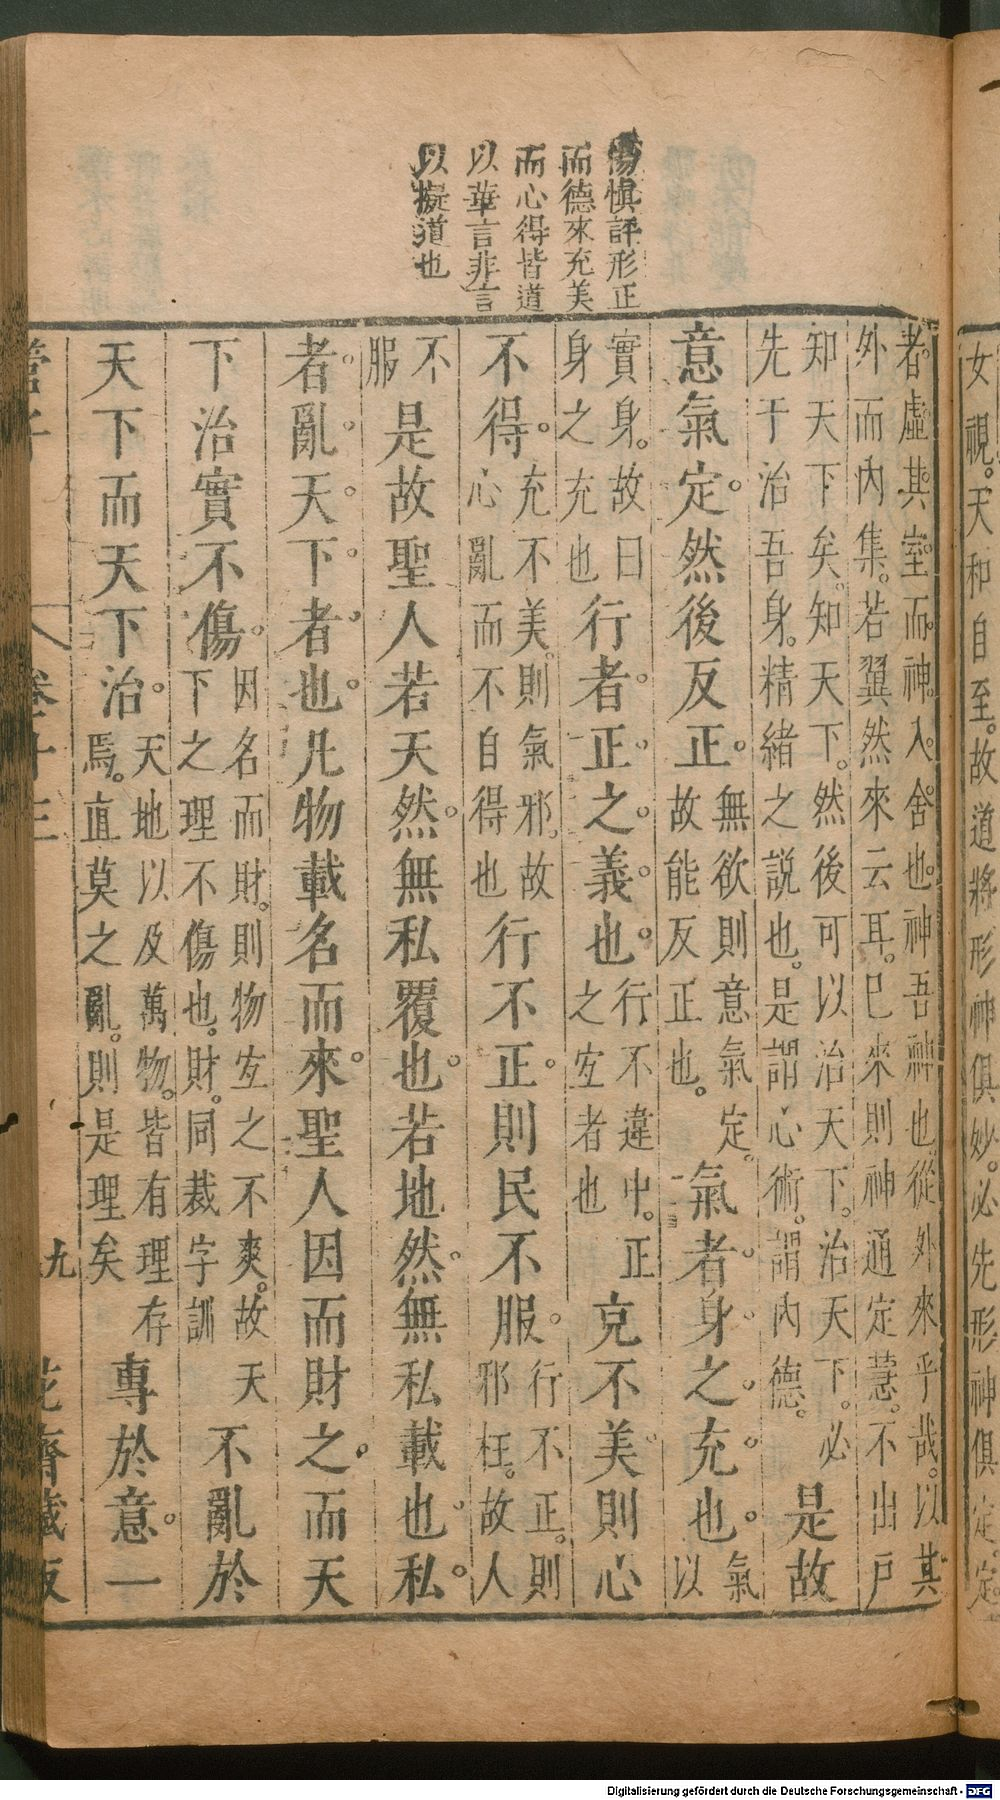 楊慎評形正
而德來充美
而心得皆道
以華言非言
以擬道也
者虛其室而神入舍也神吾神也從外來乎哉以其
外而內集若翼然來云耳巳來則神通定慧不出戶
知天下矣知天下然後可以治天下治天下必
先于治吾身精緒之說也是謂心術謂內德
是故
意氣定然後反正
無欲則意氣定
故能反正也
氣者身之充也
氣以
實身故曰
身之充也
行者正之義也
行不違中正
之宜者也
充不美則心
不得
充不美則氣邪故
心亂而不自得也
行不正則民不服
行不正則
邪枉故人
不服
是故聖人若天然無私覆也若地然無私載也私
者亂天下者也凡物載名而來聖人因而財之而天
下治實不傷
因名而財則物宜之不爽故天
下之理不傷也財同裁字訓
不亂於
天下而天下治
天地以及萬物皆有理存
焉直莫之亂則是理矣
專於意一
管子
卷十三
九
花齋藏板
女視天和自至故道將形神俱妙必先形神俱定定
Digitalisierung gefördert durch die Deutsche Forschungsgemeinschaft - DFG